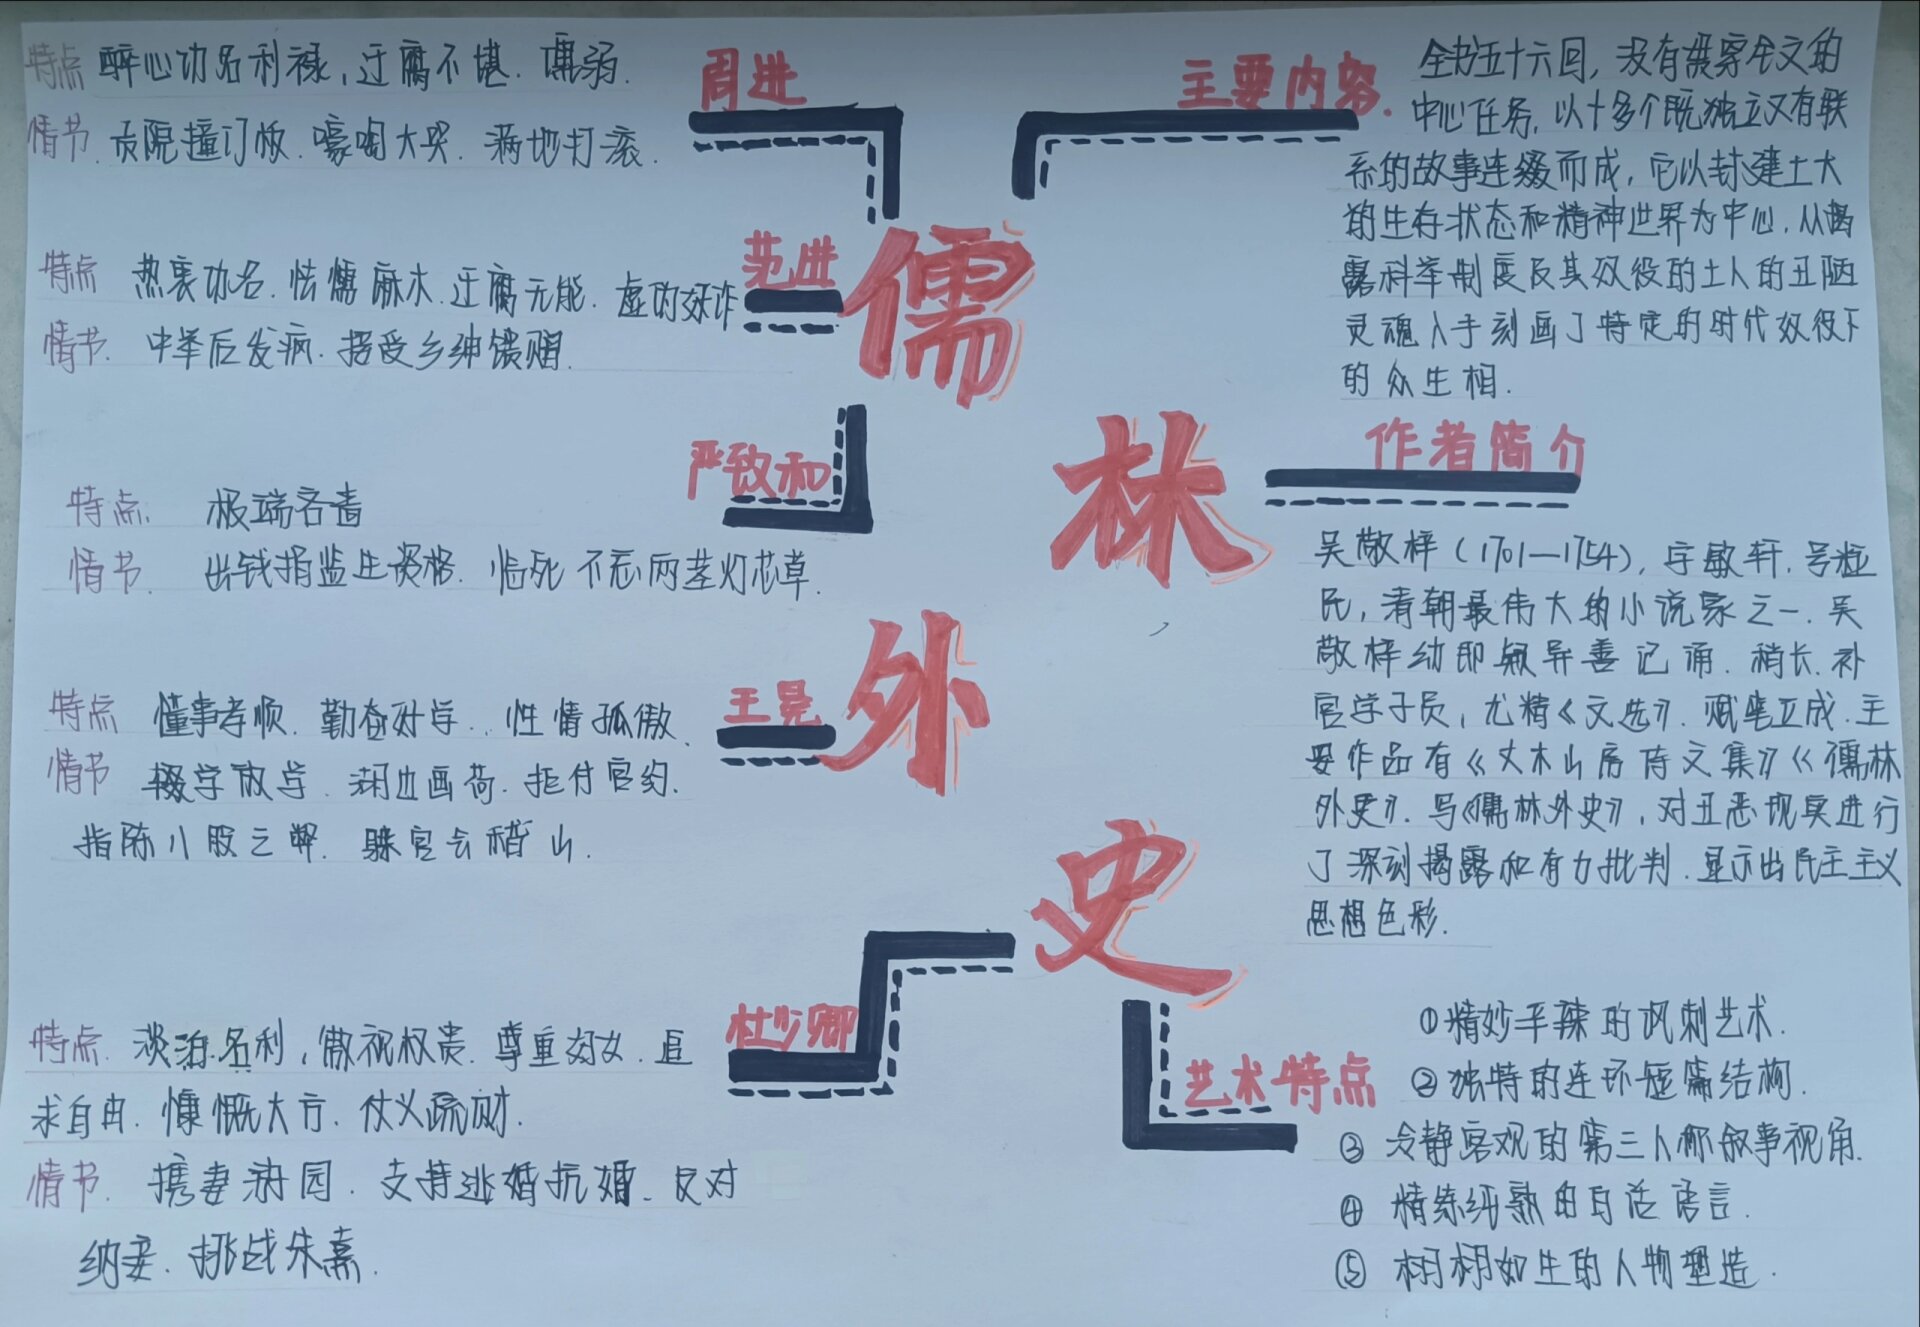 儒林外史
周进
特点 醉心功名利禄,迂腐不堪.懦弱.
情节.贡院撞订板.嚎啕大哭.满地打滚.
范进
特点 热衷功名.怯懦麻木.迂腐无能.虚伪奸诈
情节.中举后发疯.接受乡绅馈赠.
严致和
特点.极端吝啬
情节.出钱捐监生资格.临死不忘两茎灯芯草.
王冕
特点 懂事孝顺.勤奋好学..性情孤傲.
情节 辍学放学.湖边画荷.拒付官约.
指陈八股之弊.躲官会稽山.
杜少卿
特点.淡泊名利,傲视权贵.尊重妇女.追
求自由.慷慨大方.仗义疏财.
情节.携妻游园.支持逃婚抗婚.反对
纳妾.挑战朱熹.
主要内容.
全书五十六回,没有贯穿全文的
中心任务,以十多个既独立又有联
系的故事连缀而成,它以封建士大
的生存状态和精神世界为中心,从揭
露科举制度及其奴役的士人的丑陋
灵魂入手刻画了特定的时代奴役下
的众生相.
作者简介
吴敬梓(1701—1754),字敏轩,号粒
民,清朝最伟大的小说家之一.吴
敬梓幼即颖异善记诵.稍长.补
官学子员,尤精《文选》.赋笔立成.主
要作品有《文木山房诗文集》《儒林
外史》.写《儒林外史》,对丑恶现实进行
了深刻揭露和有力批判.显示出民主主义
思想色彩.
艺术特点
①精妙辛辣的讽刺艺术.
②独特的连环短篇结构.
③ 冷静客观的第三人称叙事视角.
④ 精练纯熟的白话语言.
⑤ 栩栩如生的人物塑造.